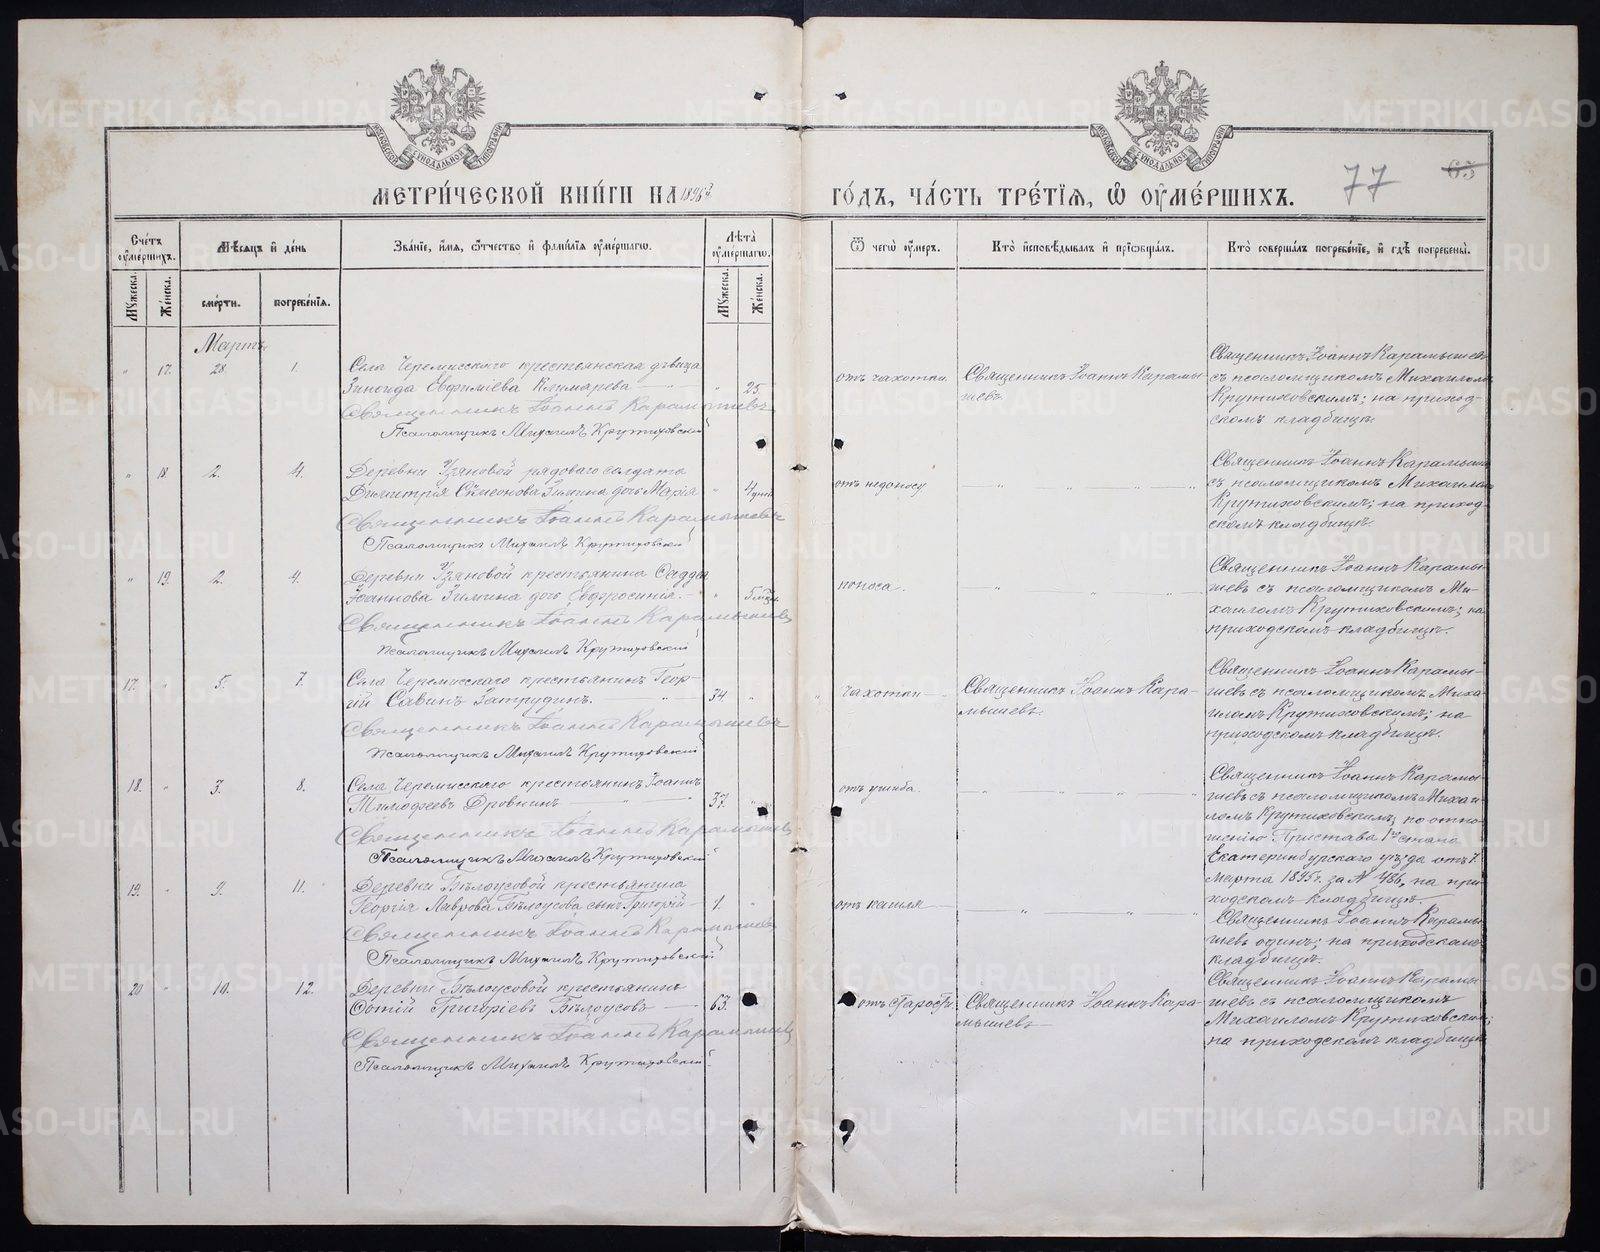 МЕТРИ́ЧЕСКОЙ КНИ́ГИ НА 1896й ГО́ДЪ, ЧА́СТЬ ТРЕ́ТЇѦ, Ѡ ОУМЕ́РШИХЪ.
77
65
МОСКОВСКОЙ СѴНОДАЛЬНОЙ ТИПОГРАФІИ
МОСКОВСКОЙ СѴНОДАЛЬНОЙ ТИПОГРАФІИ
Сче́тъ оуме́ршихъ.
Мѣсѧцъ и де́нь
Зва́нїе, и́мѧ, ѻ҆́тчество и фами́лїѧ оуме́ршагѡ.
Лѣта̀ оуме́ршагѡ.
Ѿ чегѡ̀ оу́меръ.
Кто̀ и҆сповѣ́дывалъ и прїѡбща́лъ.
Кто̀ соверша́лъ погребе́нїе, и гдѣ̀ погребены̀.
Му́жеска.
Же́нска.
сме́рти.
погребе́нїѧ.
Му́жеска.
Же́нска.
Мартъ
" 17. 28. 1.
Села Черемисскаго крестьянская дѣвица
Зиноида Евфиміева Климарева " 25.
Священникъ Іоаннъ Карамышевъ
Псаломщикъ Михаилъ Крутиховскій
отъ чахотки.
Священникъ Іоаннъ Карамы-
шевъ.
Священникъ Іоаннъ Карамышевъ
съ псаломщикомъ Михаиломъ
Крутиховскимъ; на приход-
скомъ кладбищѣ.
" 18 2. 4.
Деревни Узяновой рядоваго солдата
Димитрія Сѵмеонова Зимина дочь Марія " 4 дней
Священникъ Іоаннъ Карамышевъ
Псаломщикъ Михаилъ Крутиховскій
отъ недоносу
Священникъ Іоаннъ Карамышевъ
съ псаломщикомъ Михаиломъ
Крутиховскимъ; на приход-
скомъ кладбищѣ.
" 19. 2. 4.
Деревни Узяновой крестьянина Фаддея
Іоаннова Зимина дочь Евфросинія. " 5 мѣс.
Священникъ Іоаннъ Карамышевъ
Псаломщикъ Михаилъ Крутиховскій
поноса.
Священникъ Іоаннъ Карамы-
шевъ съ псаломщикомъ Ми-
хаиломъ Крутиховскимъ; на
приходскомъ кладбищѣ.
17. " 5. 7.
Села Черемисскаго крестьянинъ Геор-
гій Савинъ Затрудинъ. 34. "
Священникъ Іоаннъ Карамышевъ
Псаломщикъ Михаилъ Крутиховскій
" чахотки
Священникъ Іоаннъ Кара-
мышевъ.
Священникъ Іоаннъ Карамы-
шевъ съ псаломщикомъ Миха-
иломъ Крутиховскимъ; на
приходскомъ кладбищѣ.
18. " 3. 8.
Села Черемисскаго крестьянинъ Іоаннъ
Тимофеевъ Дровнинъ 37. "
Священникъ Іоаннъ Карамышевъ
Псаломщикъ Михаилъ Крутиховскій
отъ ушиба.
Священникъ Іоаннъ Карамы-
шевъ съ псаломщикомъ Михаи-
ломъ Крутиховскимъ; по отно-
шенію Пристава 1го стана
Екатеринбургскаго уѣзда отъ 7.
Марта 1895 г. за № 486, на при-
ходскомъ кладбищѣ.
19. " 9. 11.
Деревни Бѣлоусовой крестьянина
Георгія Лаврова Бѣлоусова сынъ Григорій 1. "
Священникъ Іоаннъ Карамышевъ
Псаломщикъ Михаилъ Крутиховскій
отъ кашля
Священникъ Іоаннъ Карамы-
шевъ одинъ; на приходскомъ
кладбищѣ.
20 " 10. 12.
Деревни Бѣлоусовой крестьянинъ
Фотій Григоріевъ Бѣлоусовъ 63.
Священникъ Іоаннъ Карамышевъ
Псаломщикъ Михаилъ Крутиховскій
отъ старости
Священникъ Іоаннъ Кара-
мышевъ
Священникъ Іоаннъ Карамы-
шевъ съ псаломщикомъ
Михаиломъ Крутиховскимъ;
на приходскомъ кладбищѣ
METRIKI.GASO-URAL.RU